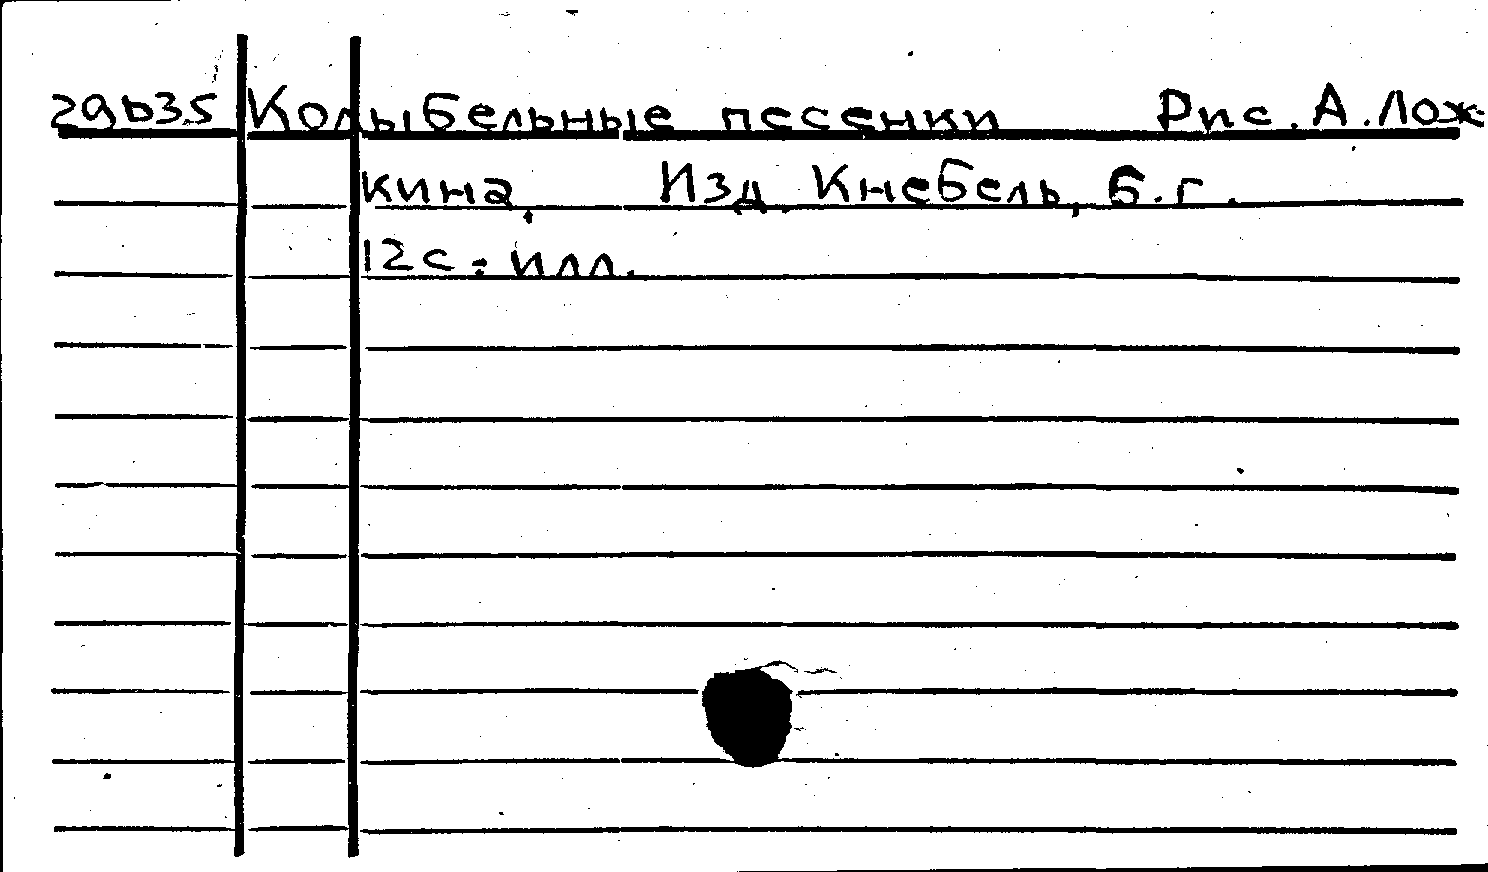 29b35 Колыбельные песенки Рис. А. Лож-
кина. Изд. Кнебель, б.г.
12с. илл.